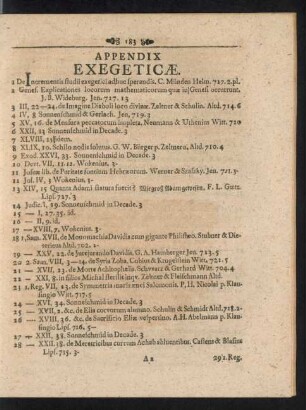 183
APPENDIX
EXEGETICÆ.
1 De Incrementis studii exegetici adhuc sperandis. C. Münden Helm. 727. 2. pl.
2 Genes. Explicationes locorum mathematicorum quæ in Genesi occurrunt.
J. B. Wideburg. Jen. 727. 13
3 III, 22—24. de Imagine Diaboli loco divinæ. Zeltner & Schulin. Altd. 714. 6
4 IV, 8 Sonnenschmid & Gerlach. Jen. 719. 3
5 XV, 16. de Mensura peccatorum impleta. Neumann & Uthenim Witt. 720
6 XXII, 13 Sonnenschmid in Decade. 3
7 XLVIII, 15
8 XLIX, 10. Schilo nodis solutus. G. W. Börger p. Zeltnero, Altd. 710. 4
9 Exod. XXVI, 35. Sonnenschmid in Decade. 3
10 Deut. VII, 11-12. Wokenius. 3-
11 Josuæ lib. de Puritate fontium Hebræorum. Werner & Jen. 721. 5
12 Jos. IV, 3 Wokenius. 3
13 XIV, 15 Quanta Adami statura fuerit? F. L. Gœtz.
Lips. 727. 3
14 Judic. I, 19. Sonnenschmid in Decade. 3
15 — I, 27. 35. id.
16 — II, 9. id.
17 — XVIII, 7. Wokenius. 3-
18 1. Sam. XVII, de Monomachia Davidis cum gigante Philisthæo. Stuber & Dietericus Altd. 702. 2-
19 — XXV, 22. de Jurejurando Davidis. G. A. Hamberger Jen. 723. 5
20 2. Sam. VIII, 3—14. de Syria Zoba. Cobius & Witt. 721. 5
21 — XVIII, 33. de Morte Achitophelis. Schwarz & Gerhard Witt. 704. 4
22 — XXI, 8. in filios Michal sterilis imp. Zeltner & Fleischmann Altd.
23 1. Reg. VII, 23. de Symmetria maris ænei Salomonis. P. H. Nicolai p. Klausingio Witt. 717. 5
24 — XVI, 34. Sonnenschmid in Decade. 3
25 — XVII, 2, &c. de Elia corvorum alumno. Schulin & Schmidt Altd. 718. 2-
26 — XVIII, 36. &c. de Sacrificio Eliæ vespertino. A. H. Abelmann p. Klausingio Lips. 726. 5—
27 — XXII, 38. Sonnenschmid in Decade. 3
28 — XXII. 38. de Meretricibus currum Achab abluentibus. Cassens & Blasius
Lips. 715. 3-
A 2 29 1. Reg.